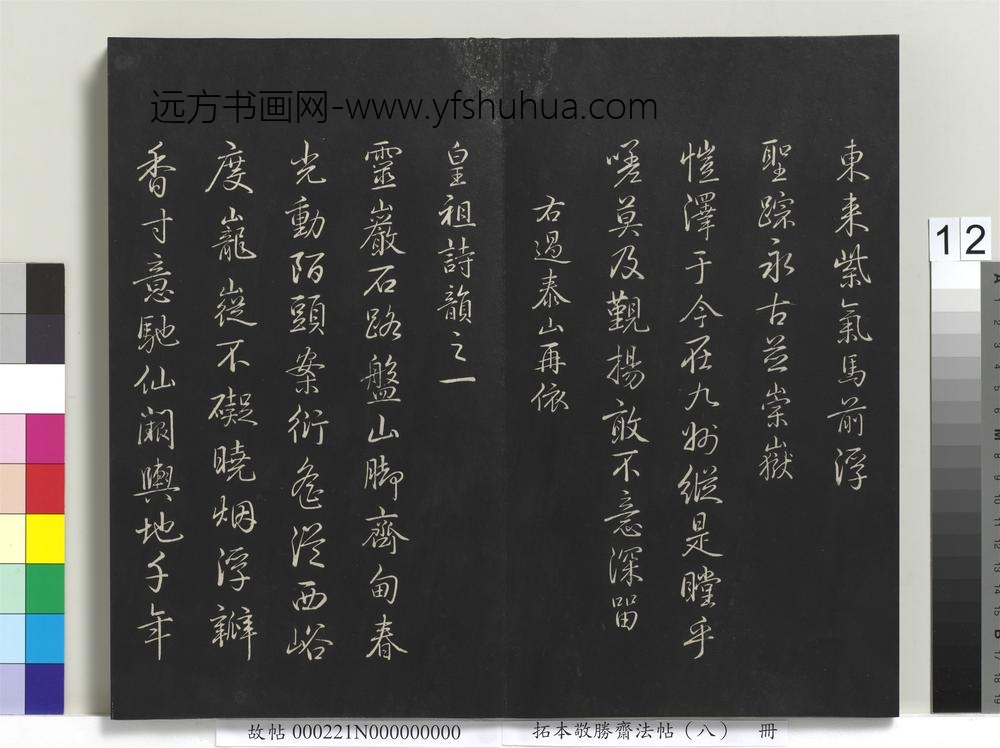 远方书画网-www.yfshuhua.com
東来紫氣馬前浮
聖踪永古並崇嶽
愷澤于今在九州縱是瞠乎
嗟莫及覲揚敢不意深留
右過泰山再依
皇祖詩韻之一
靈巖石路盤山脚齊甸春
光動陌頭案衍危從西峪
度巃嵸不礙曉烟浮瓣
香寸意馳仙闕輿地千年
12
故帖 000221N000000000
拓本敬勝齋法帖(八) 冊